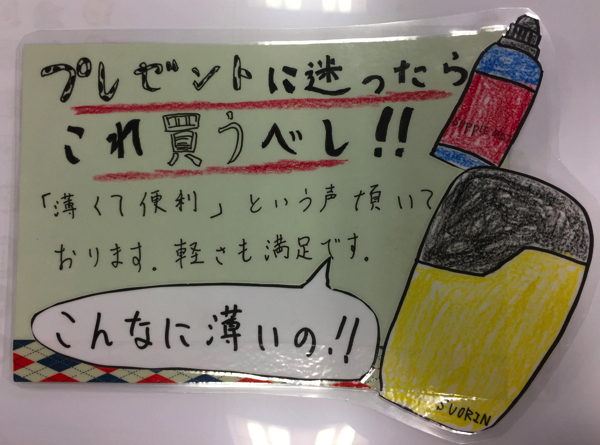 プレゼントに迷ったら
これ買うべし!!
「薄くて便利」という声頂いて
おります。軽さも満足です。
こんなに薄いの!!
SUORIN